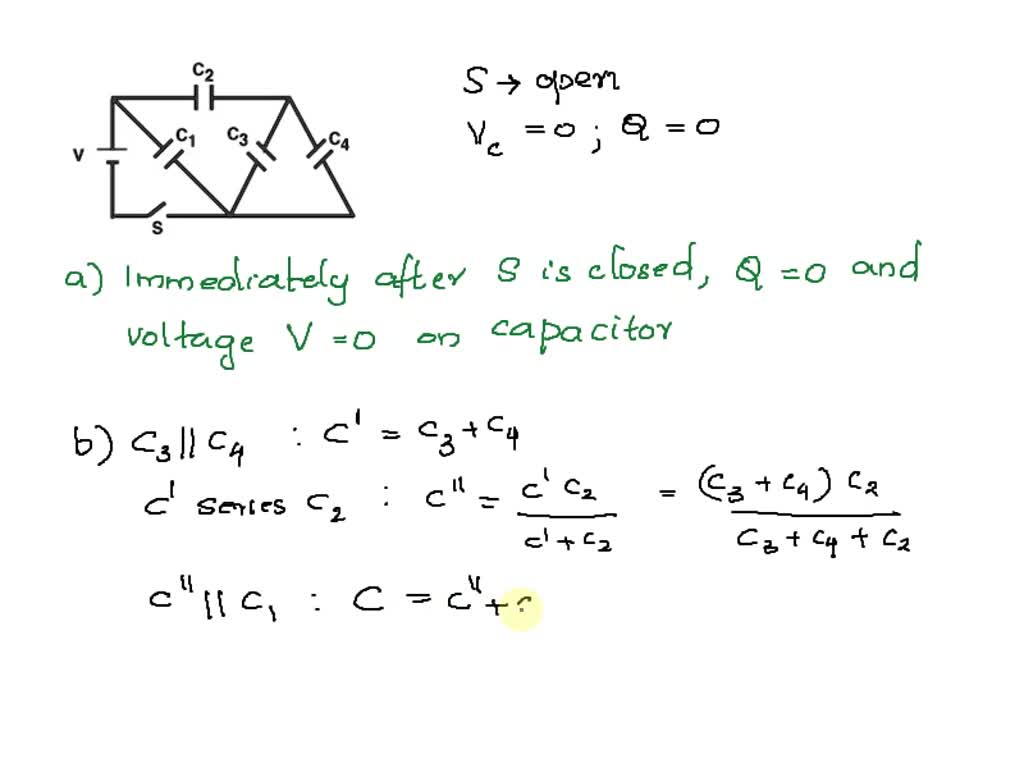 C2
C1
C3
C4
V
S
S → open
Vc = 0 ; Q = 0
a) Immediately after S is closed, Q = 0 and
voltage V = 0 on capacitor
b) C3 || C4 : C' = C3 + C4
C' series C2 : C'' = C' C2 / C' + C2 = (C3 + C4) C2 / C3 + C4 + C2
C'' || C1 : C = C'' +